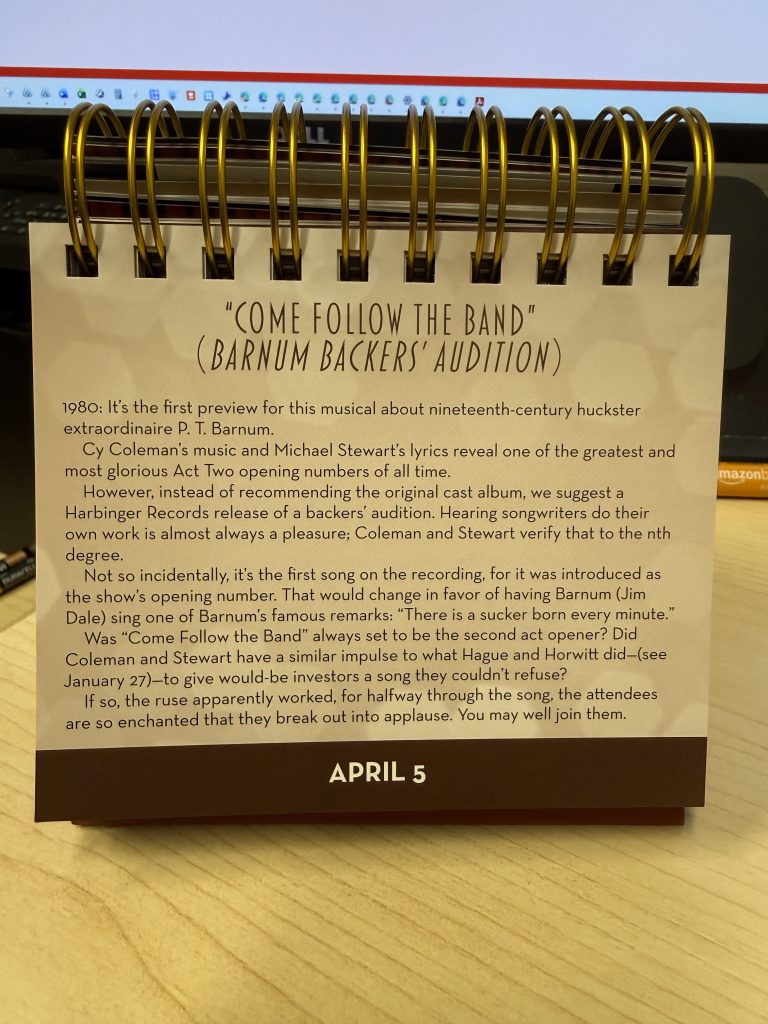 DELL
amazonb
"COME FOLLOW THE BAND"
(BARNUM BACKERS' AUDITION)
1980: It's the first preview for this musical about nineteenth-century huckster
extraordinaire P. T. Barnum.
Cy Coleman's music and Michael Stewart's lyrics reveal one of the greatest and
most glorious Act Two opening numbers of all time.
However, instead of recommending the original cast album, we suggest a
Harbinger Records release of a backers' audition. Hearing songwriters do their
own work is almost always a pleasure; Coleman and Stewart verify that to the nth
degree.
Not so incidentally, it's the first song on the recording, for it was introduced as
the show's opening number. That would change in favor of having Barnum (Jim
Dale) sing one of Barnum's famous remarks: "There is a sucker born every minute."
Was "Come Follow the Band" always set to be the second act opener? Did
Coleman and Stewart have a similar impulse to what Hague and Horwitt did—(see
January 27)—to give would-be investors a song they couldn't refuse?
If so, the ruse apparently worked, for halfway through the song, the attendees
are so enchanted that they break out into applause. You may well join them.
APRIL 5